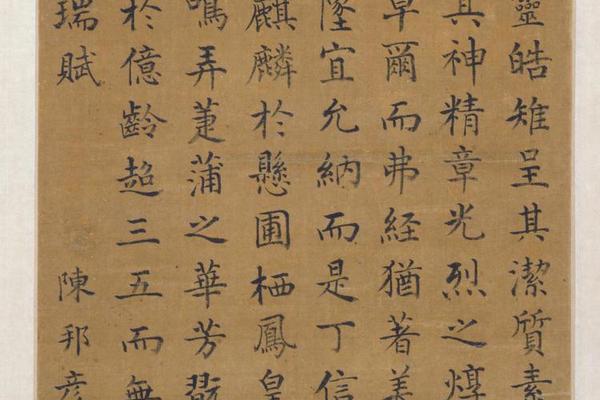 靈皓雉呈其潔質素
其神精章光烈之
卓爾而弗経猶著美
墜宜允納而是丁信
麒麟於懸圃栖鳳皇
鳴弄萐蒲之華芳翫
於億齡超三五而無
瑞賦 陳邦彥